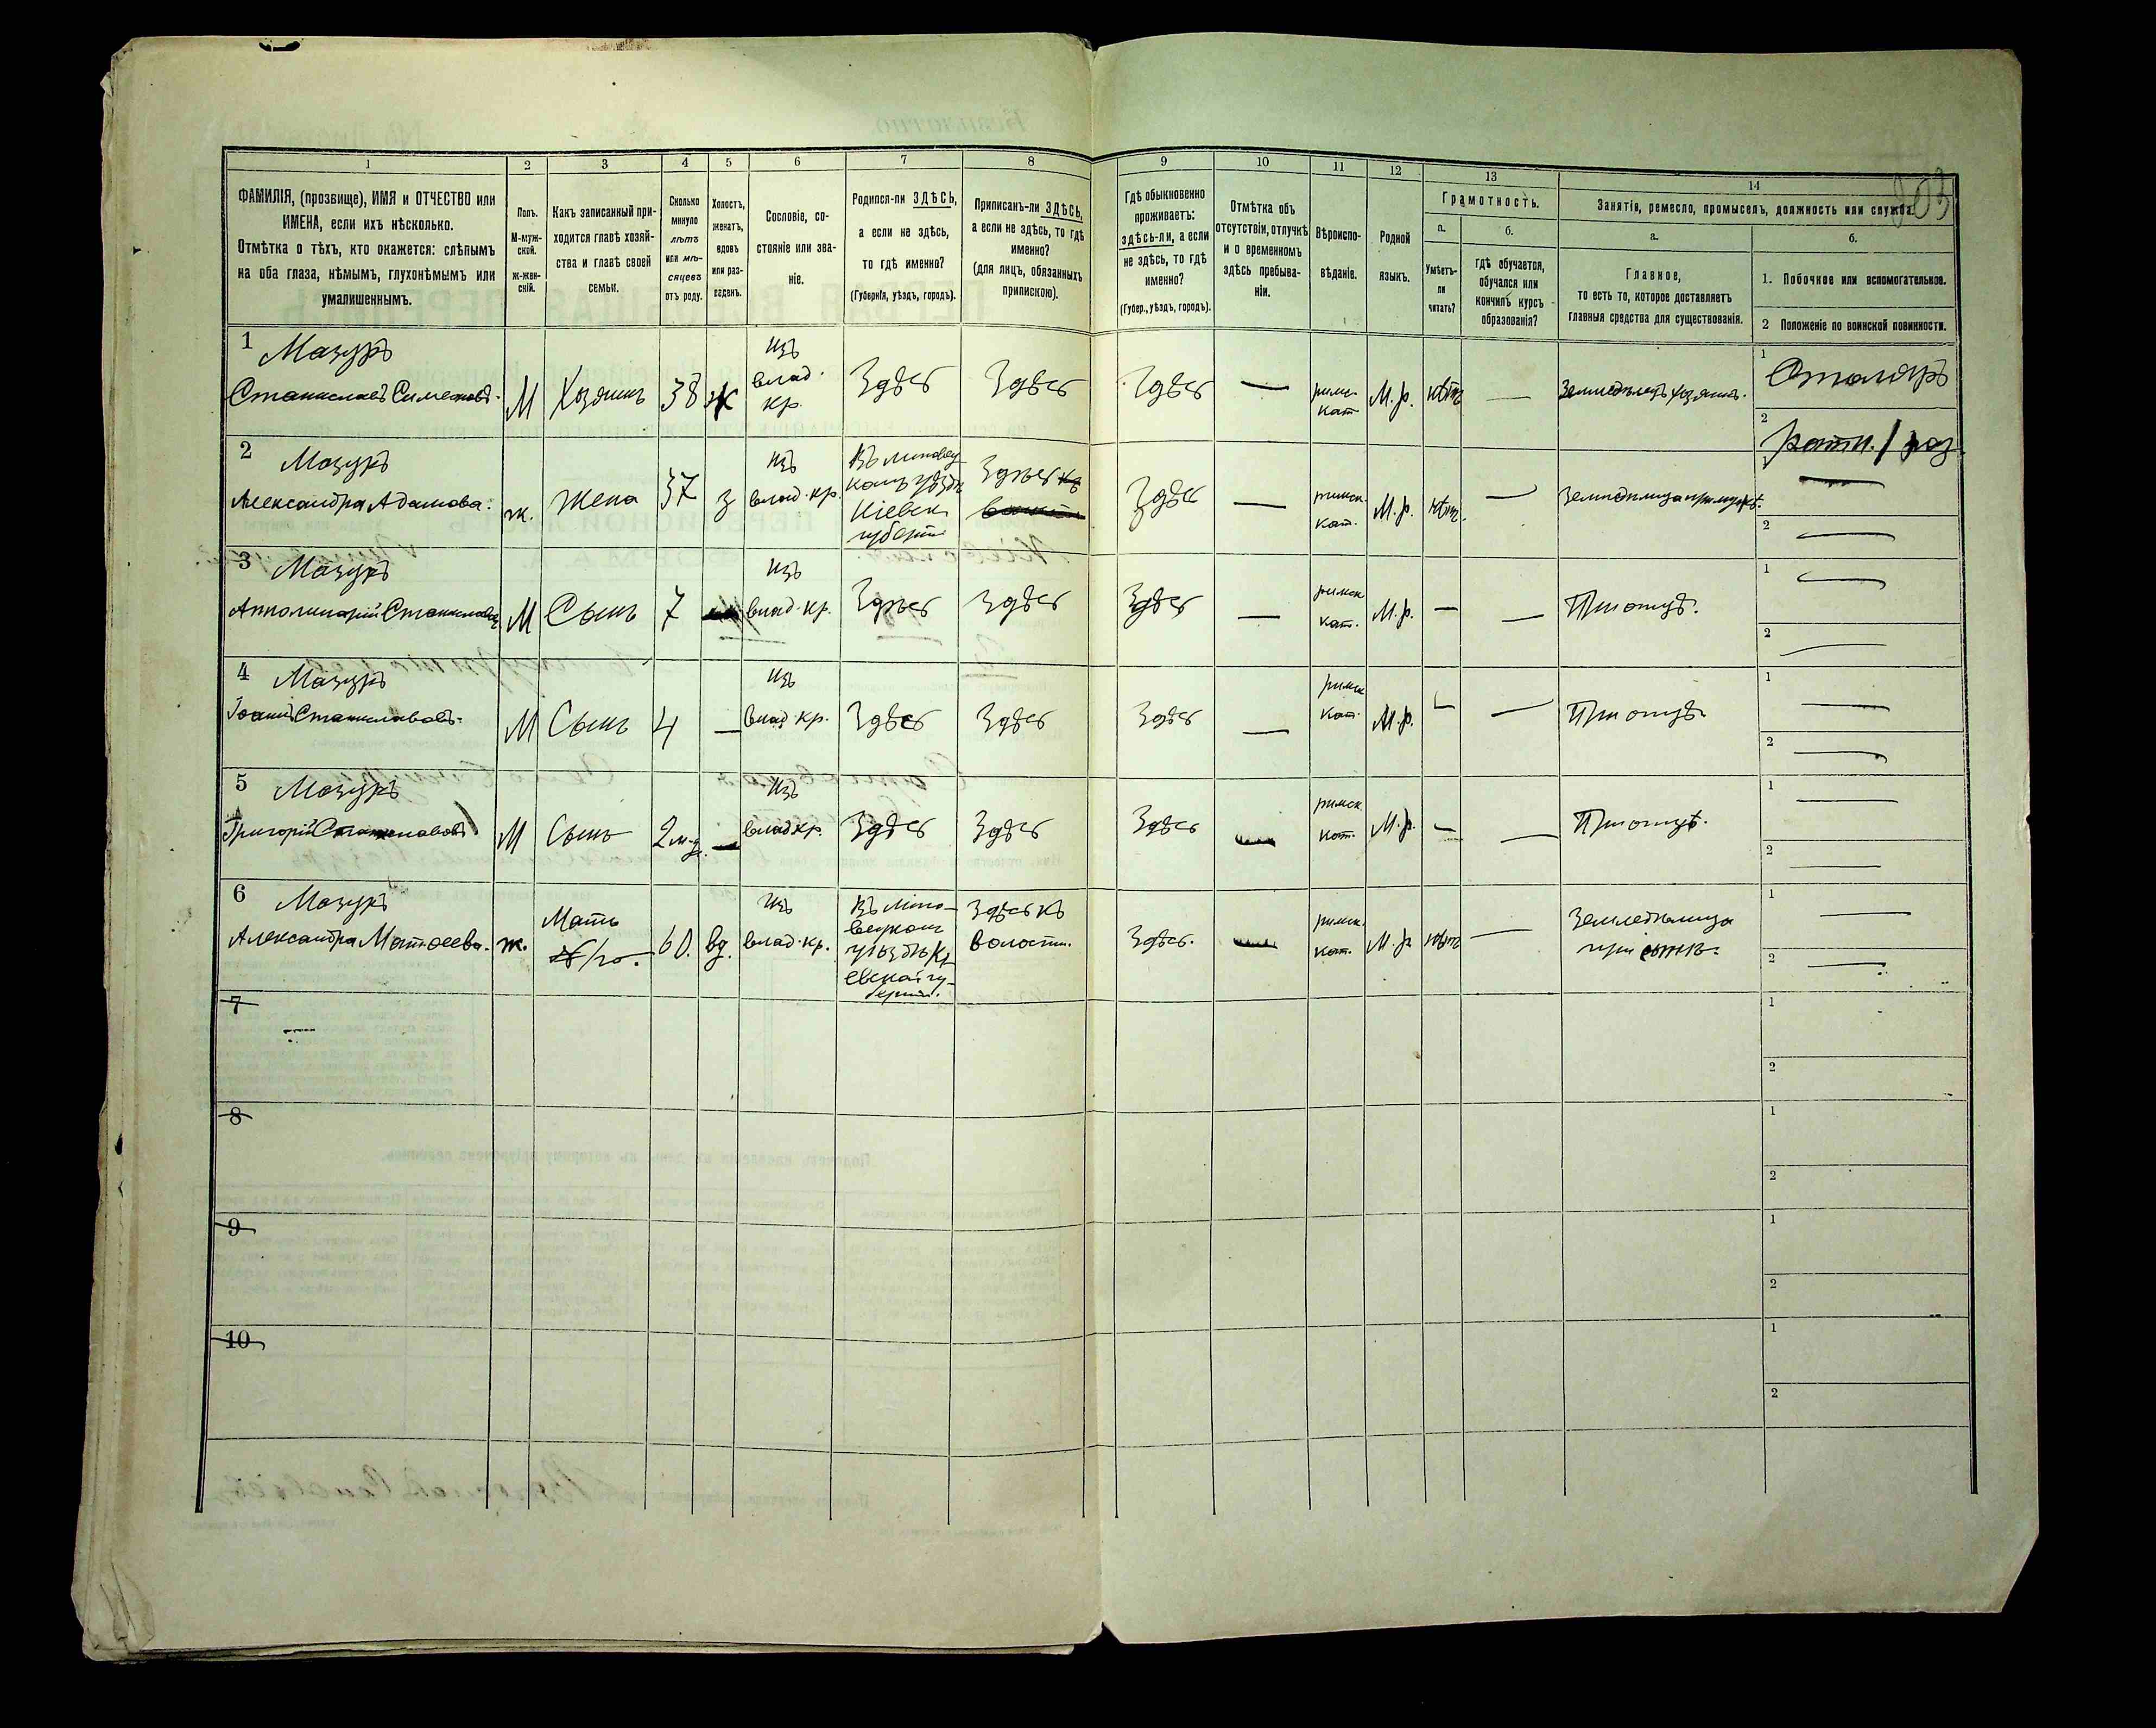 1 2 3 4 5 6 7 8 9 10 11 12 13 14
ФАМИЛІЯ, (прозвище), ИМЯ и ОТЧЕСТВО или
ИМЕНА, если ихъ нѣсколько.
Отмѣтка о тѣхъ, кто окажется: слѣпымъ
на оба глаза, нѣмымъ, глухонѣмымъ или
умалишеннымъ.
Полъ.
М-муж-
ской.
ж-жен-
скій.
Какъ записанный при-
ходится главѣ хозяй-
ства и главѣ своей
семьи.
Сколько
минуло
лѣтъ
или мѣ-
сяцевъ
отъ роду.
Холостъ,
женатъ,
вдовъ
или раз-
веденъ.
Сословіе, со-
стояніе или зва-
ніе.
Родился-ли ЗДѢСЬ,
а если не здѣсь,
то гдѣ именно?
(Губернія, уѣздъ, городъ).
Приписанъ-ли ЗДѢСЬ,
а если не здѣсь, то гдѣ
именно?
(для лицъ, обязанныхъ
припискою).
Гдѣ обыкновенно
проживаетъ:
здѣсь-ли, а если
не здѣсь, то гдѣ
именно?
(Губер., уѣздъ, городъ).
Отмѣтка объ
отсутствіи, отлучкѣ
и о временномъ
здѣсь пребыва-
ніи.
Вѣроиспо-
вѣданіе.
Родной
языкъ.
Грамотность.
а.
Умѣетъ-
ли
читать?
б.
гдѣ обучается,
обучался или
кончилъ курсъ
образованія?
Занятія, ремесло, промыселъ, должность или служба.
а.
Главное,
то есть то, которое доставляетъ
главныя средства для существованія.
б.
1. Побочное или вспомогательное.
2 Положеніе по воинской повинности.
1 Мазуръ
Станиславъ Симеоновъ.
М
Хозяинъ
38
ж
изъ
влад.
кр.
Здѣсь
Здѣсь
Здѣсь
—
римс.
кат
М.р.
нѣтъ
—
Земледѣлецъ хозяинъ.
1 Столяръ
2
2 Мазуръ
Александра Адамова.
ж.
Жена
37
з
изъ
влад. кр.
Въ Липовец
комъ уѣздѣ
Кіевск.
губерніи
Здѣсь
Здѣсь
—
римск.
кат.
М.р.
нѣтъ.
—
1 —
2 —
3 Мазуръ
Апполинарій Станиславовъ
М
Сынъ
7
изъ
влад. кр.
Здѣсь
Здѣсь
Здѣсь
—
римск
кат.
М.р.
—
—
При отцѣ.
1 —
2 —
4 Мазуръ
Іоаннъ Станиславовъ.
М
Сынъ
4
—
изъ
влад. кр.
Здѣсь
Здѣсь
Здѣсь
—
римск
кат.
М.р.
—
—
При отцѣ.
1 —
2 —
5 Мазуръ
Григорій Станиславовъ
М
Сынъ
—
изъ
влад кр.
Здѣсь
Здѣсь
Здѣсь
—
римск
кат.
М.р.
—
—
При отцѣ.
1 —
2 —
6 Мазуръ
Александра Матѳеева.
ж.
Мать
60.
вд.
изъ
влад. кр.
Въ Липо-
вецкомъ
уѣздѣ Кі-
евской гу-
берніи.
Здѣсь къ
волости.
Здѣсь.
—
римск.
кат.
М.р
нѣтъ
—
Земледѣлица
при сынѣ.
1 —
2 —
7
1
2
8
1
2
9
1
2
10
1
2